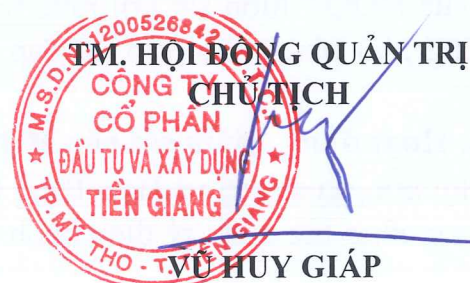 TM. HỘI ĐỒNG QUẢN TRỊ
CHỦ TỊCH
M.S.D.N: 1200526842
CÔNG TY
CỔ PHẦN
ĐẦU TƯ VÀ XÂY DỰNG
TIỀN GIANG
TP. MỸ THO - T. TIỀN GIANG
VŨ HUY GIÁP